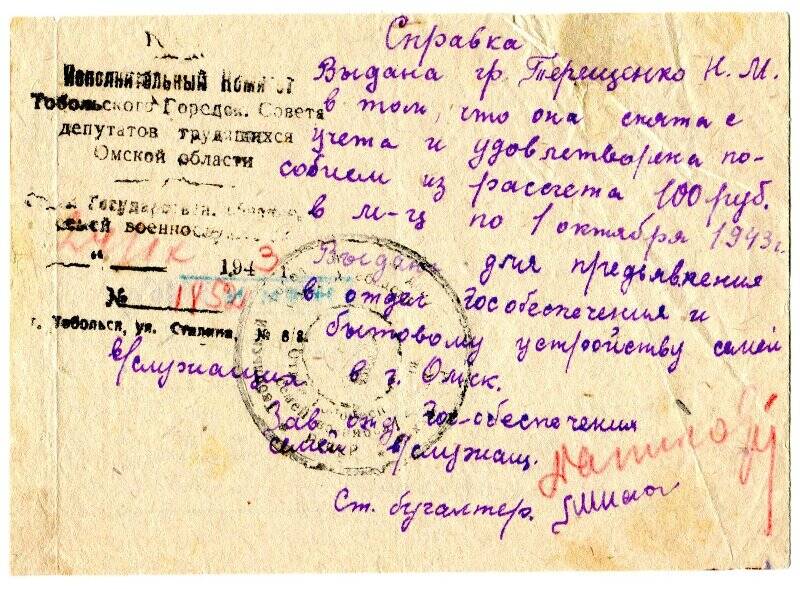 Справка
Исполнительный Комитет
Тобольского Городск. Совета
депутатов трудящихся
Омской области
Государствен.
семей военнослуж
194 3 г.
№
г. Тобольск, ул. Сталина, №
Выдана гр. Терещенко Н. М.
в том, что она снята с
учета и удовлетворена по-
собием из рассчета 100 руб.
в м-ц по 1 октября 1943 г.
Выдана для предъявления
в отдел Гособеспечения и
бытовому устройству семей
в/служащих в г. Омск.
Зав отд Гос-обеспечения
семей в/служащ.
Ст. бугалтер.